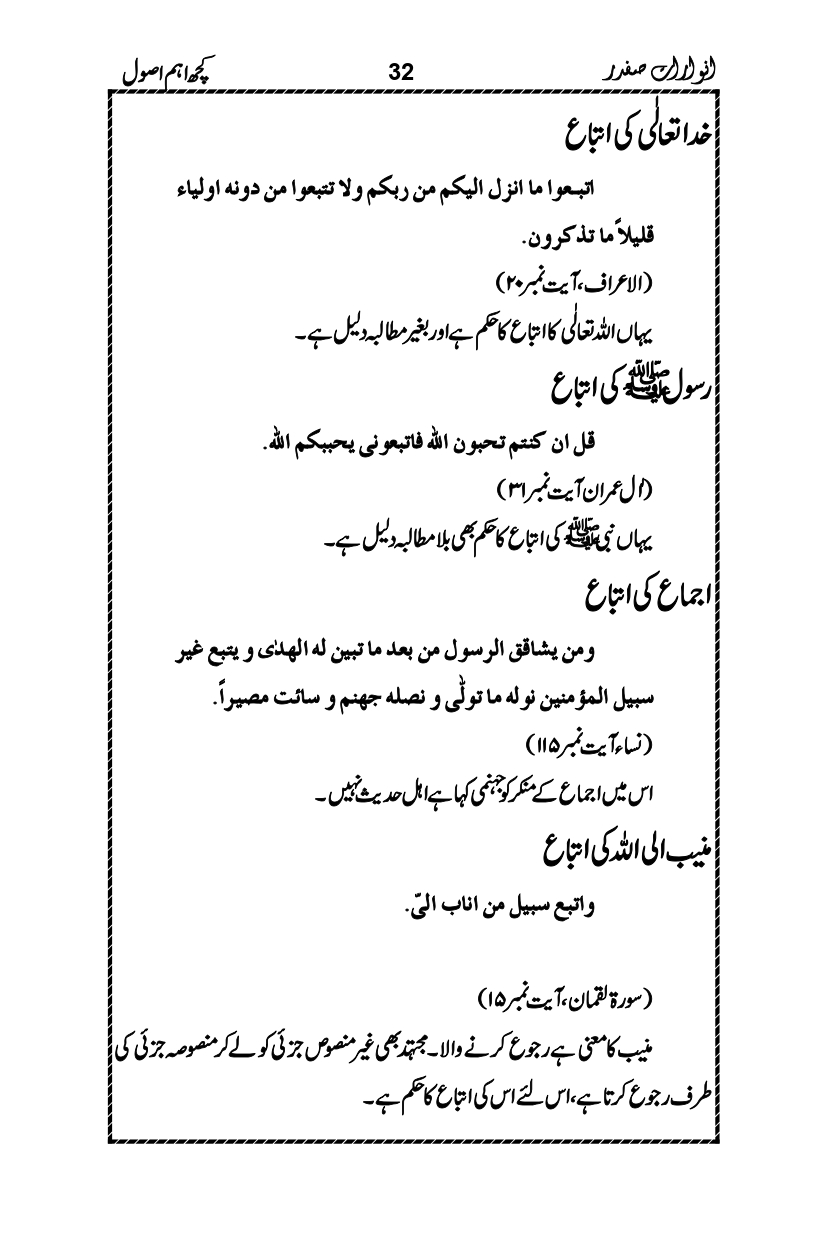 انوارات صفدر 32 کچھ اہم اصول
خدا تعالٰی کی اتباع
اتبعوا ما انزل الیکم من ربکم ولا تتبعوا من دونه اولیاء
قلیلاً ما تذکرون.
(الاعراف، آیت نمبر ۲۰)
یہاں اللہ تعالٰی کا اتباع کا حکم ہے اور بغیر مطالبہ دلیل ہے۔
رسول ﷺ کی اتباع
قل ان کنتم تحبون الله فاتبعونی یحببکم الله.
(اٰل عمران آیت نمبر ۳۱)
یہاں نبی ﷺ کی اتباع کا حکم بھی بلا مطالبہ دلیل ہے۔
اجماع کی اتباع
ومن یشاقق الرسول من بعد ما تبین له الهدٰی و یتبع غیر
سبیل المؤمنین نوله ما تولّٰی و نصله جهنم و سائت مصیراً.
(نساء آیت نمبر ۱۱۵)
اس میں اجماع کے منکر کو جہنمی کہا ہے اہل حدیث نہیں۔
منیب الی اللہ کی اتباع
واتبع سبیل من اناب الیّ.
(سورۃ لقمان، آیت نمبر ۱۵)
منیب کا معنی ہے رجوع کرنے والا۔ مجتہد بھی غیر منصوص جزئی کو لے کر منصوصہ جزئی کی
طرف رجوع کرتا ہے، اس لئے اس کی اتباع کا حکم ہے۔